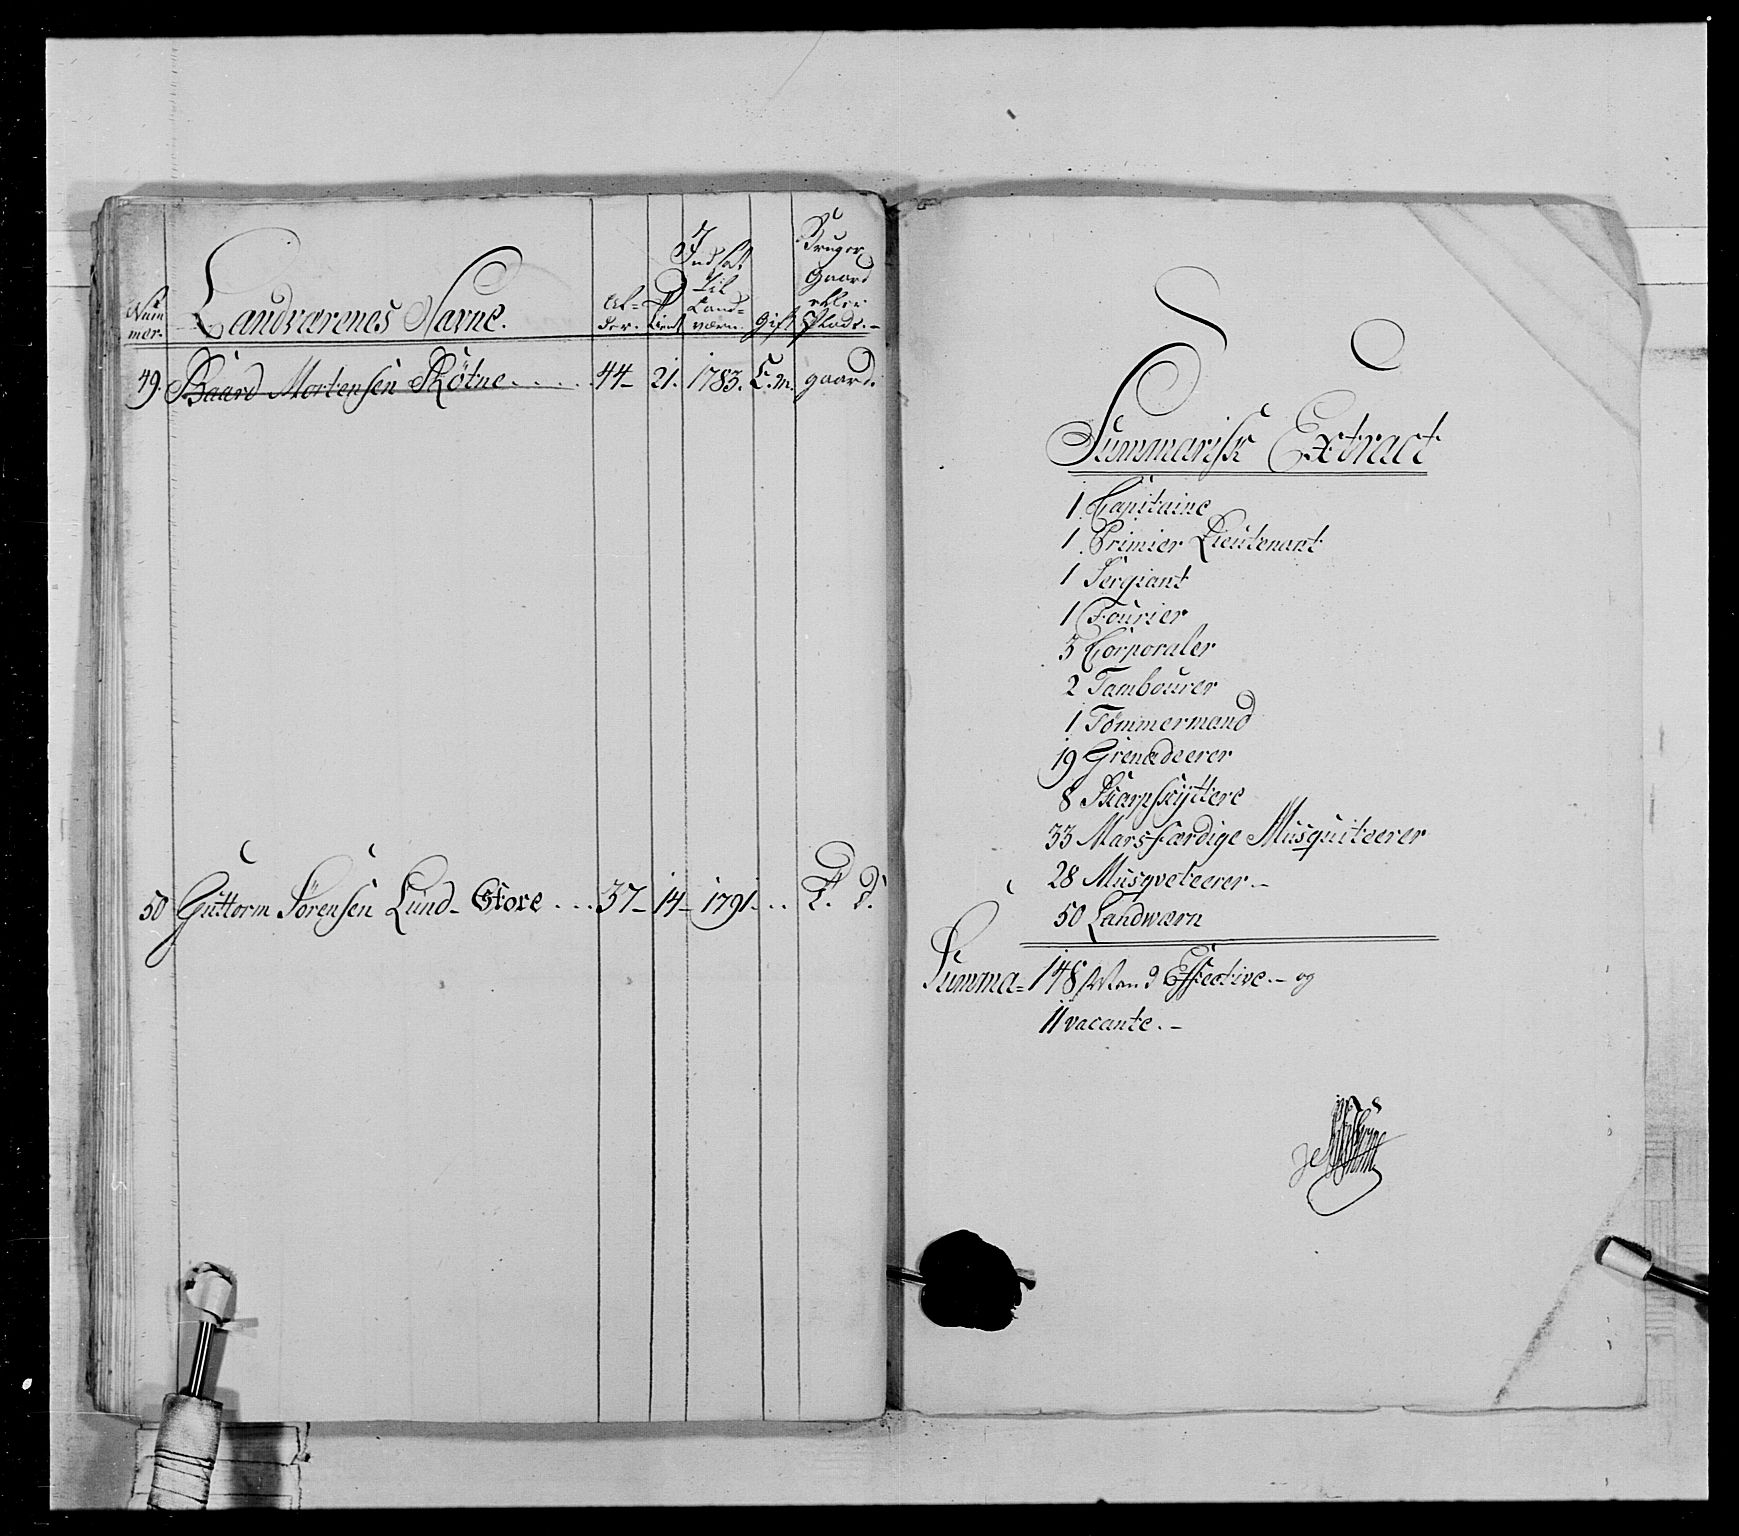 Num
mer.
Landværenes Navne.
Al=
der.
Tient
Indsat
til
Land=
værn.
Gift
Bruger
Gaard
eller
Plads.
49. Baard Mortensen Røtne..... 44 - 21. 1783. E. m. gaard.
50 Guttorm Sørensen Lund - Store ... 37 - 14 - 1791 ... D. D.
Summarisk Extract
1 Capitaine
1 Primier Lieutenant
1 Sergiant
1 Fourier
3 Corporaler
2 Tambourer
1 Tømmermand
19 Grenadeerer
8 Skarpskyttere
33 Marsfærdige Musquiteerer
28 Musqveteerer. -
50 Landwærn
Summa = 148 Mand Effective. - og
11 vacante. -